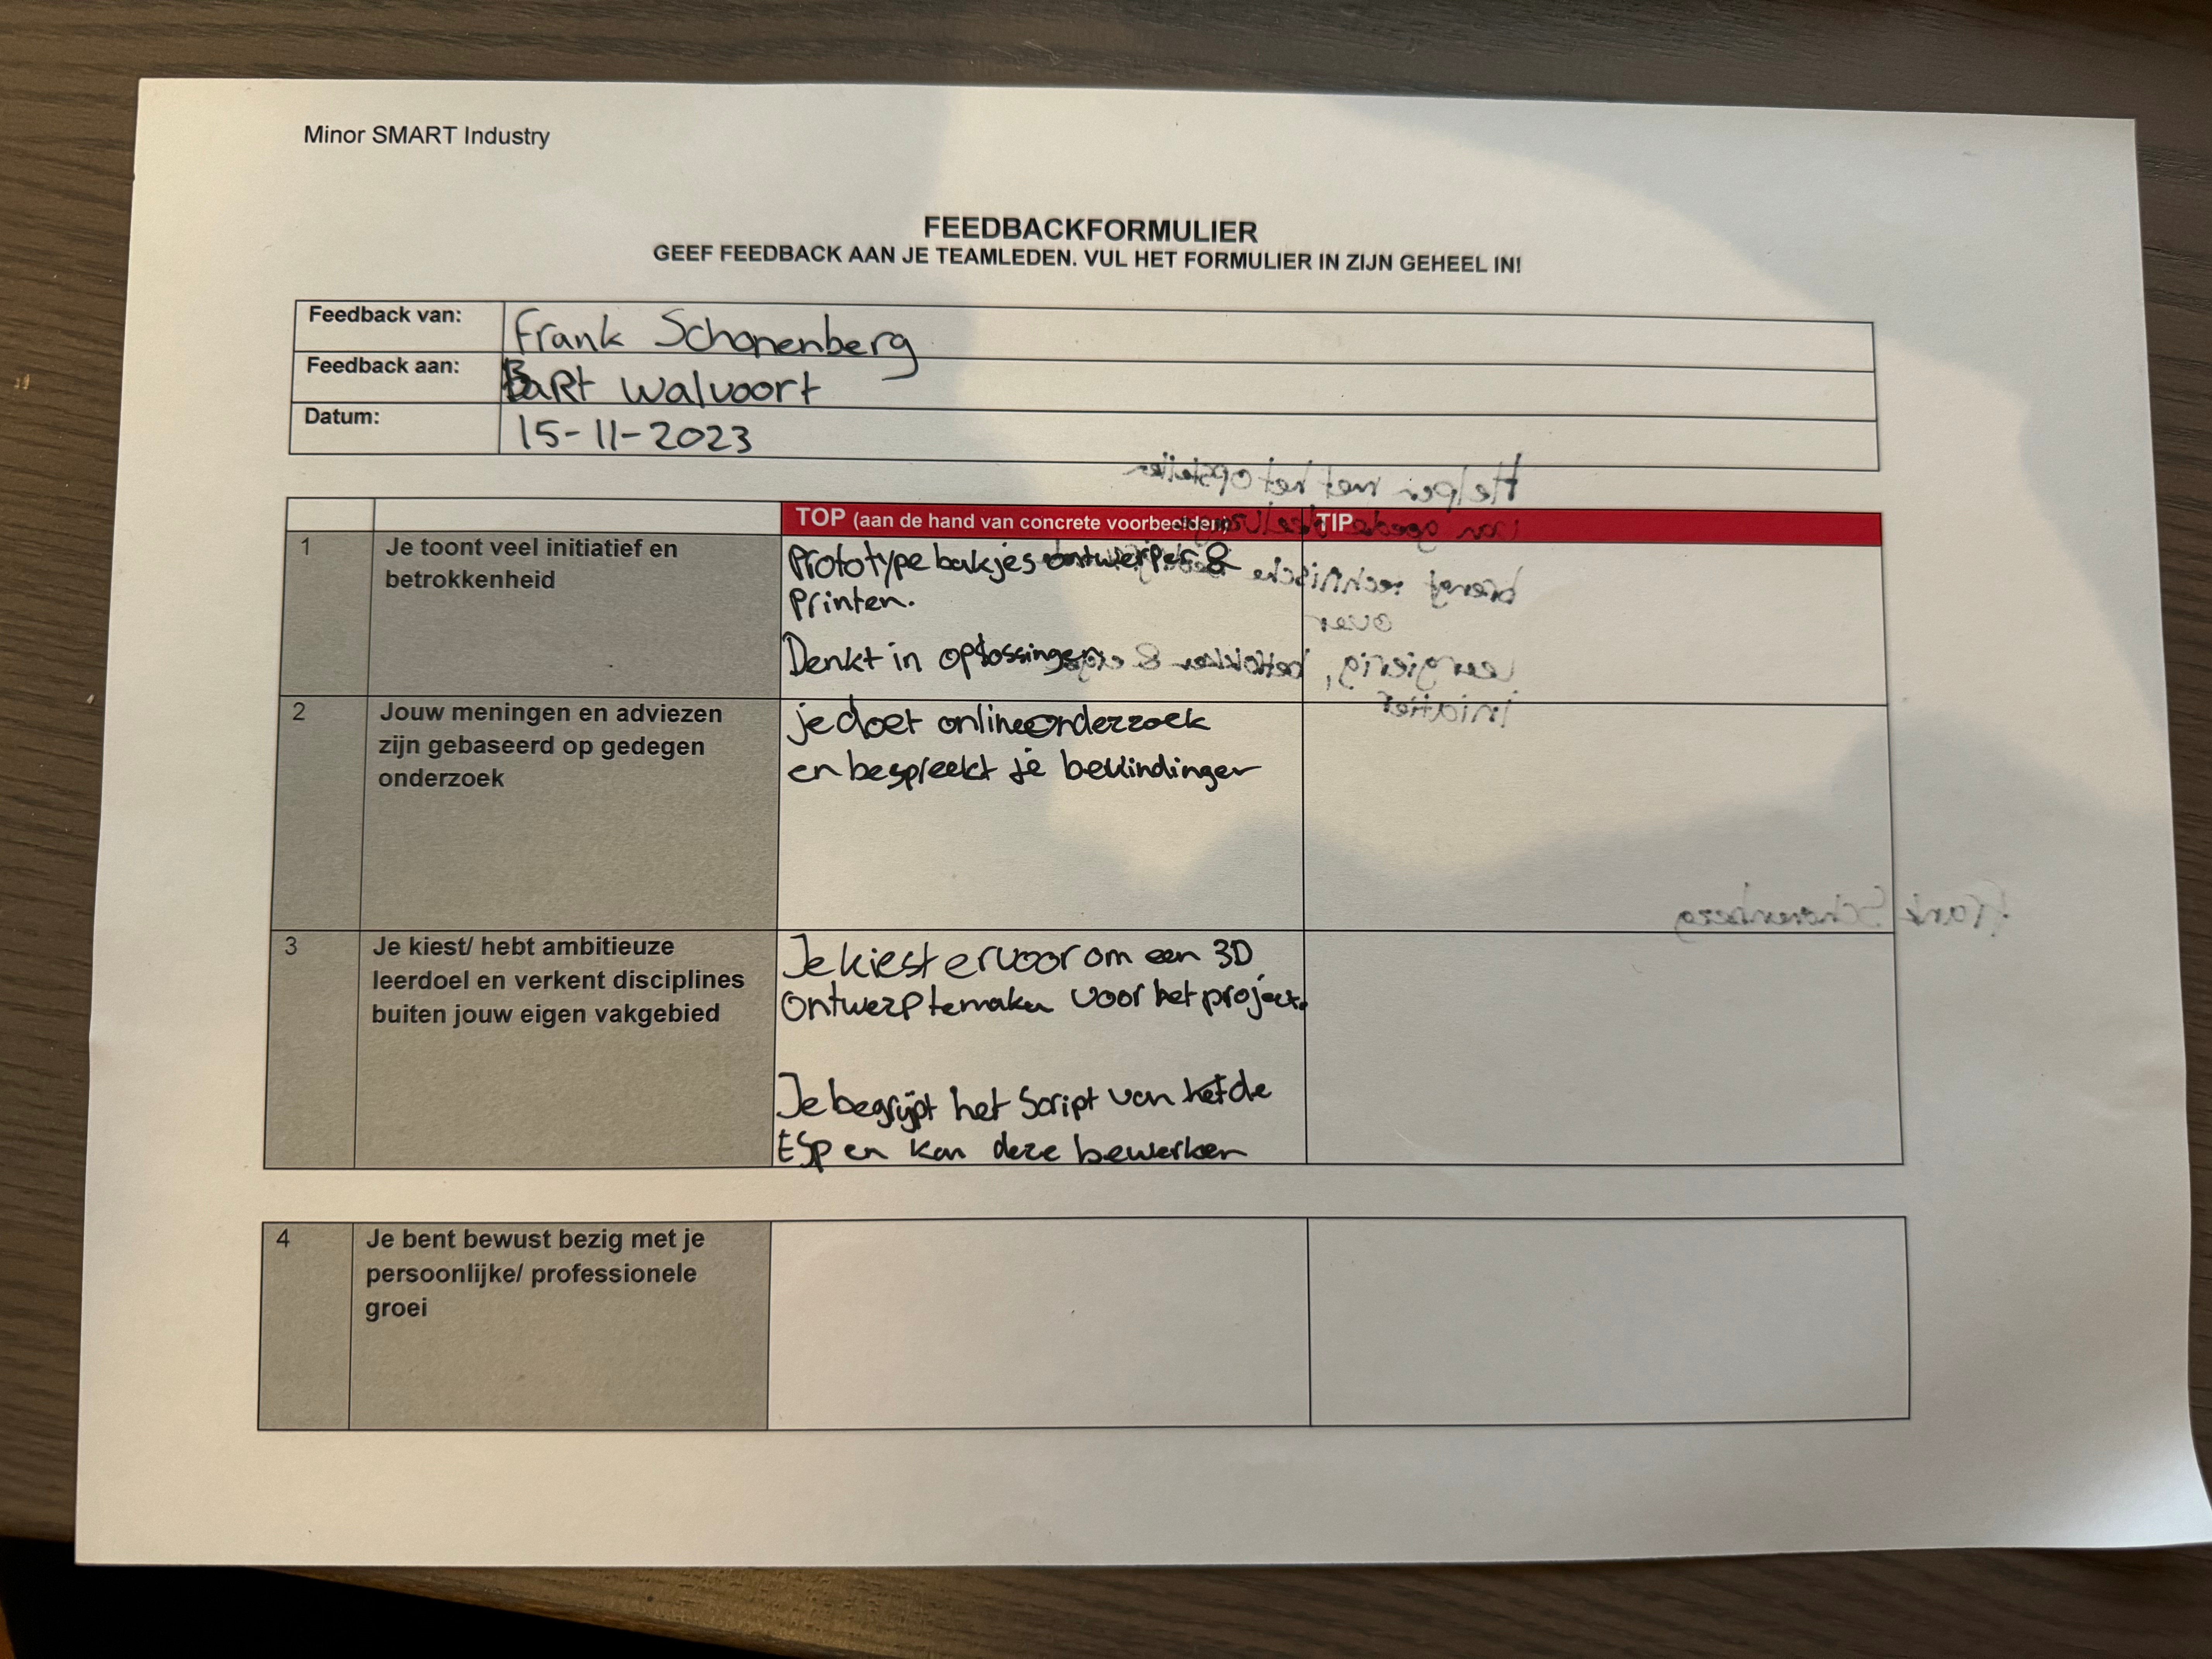 Minor SMART Industry
FEEDBACKFORMULIER
GEEF FEEDBACK AAN JE TEAMLEDEN. VUL HET FORMULIER IN ZIJN GEHEEL IN!
Feedback van: Frank Schonenberg
Feedback aan: BaRt Walvoort
Datum: 15-11-2023
TOP (aan de hand van concrete voorbeelden) TIP
1 Je toont veel initiatief en
betrokkenheid
Prototype bakjes ontwerpen &
Printen.
Denkt in oplossingen
Helpen met het opstellen
van goede deelvragen
brengt technische
over
leergierig, betrokken &
initiatief
2 Jouw meningen en adviezen
zijn gebaseerd op gedegen
onderzoek
je doet online onderzoek
en bespreekt je bevindingen
Frank Schonenberg
3 Je kiest/ hebt ambitieuze
leerdoel en verkent disciplines
buiten jouw eigen vakgebied
Je kiest ervoor om een 3D
Ontwerp te maken voor het project.
Je begrijpt het Script van het de
ESP en kan deze bewerken
4 Je bent bewust bezig met je
persoonlijke/ professionele
groei